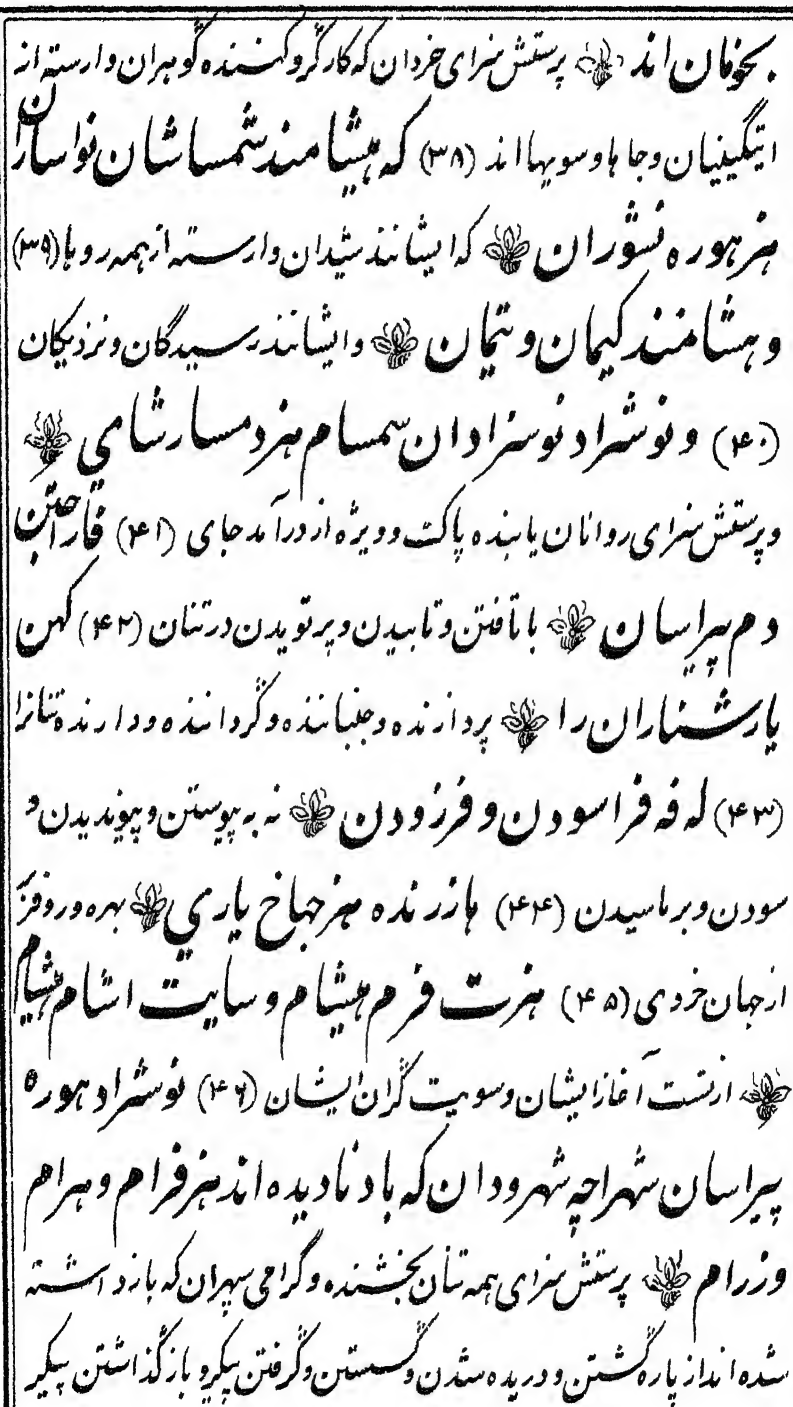 بخوفان اند پرستش سزای خردان که کارگر و کننده گوهران وارسته از
اتیگینیان و جاها و سویها اند (۳۸) که هیشامند شمساشان نواساران
هز هوره نسوران که ایشانند شیدان وارسته از همه رویها (۳۹)
و هشامند کیمان و تیمان و ایشانند رسیدگان و نزدیکان
(۴۰) و نوشراد نوسزادان سمسام هزد مسارشامی
و پرستش سزای روانان یابنده پاک و ویژه از درآمد جای (۴۱) فاراجتن
دم پیراسان با تافتن و تابیدن و پرتویدن در تنان (۴۲) کهن
یارشناران را پردازنده و جنباننده و گرداننده و دارنده تنانرا
(۴۳) له فه فراسودن و فرزودن نه به پیوستن و پیوندیدن و
سودن و برماسیدن (۴۴) هازرنده هز جهاخ یاری بهره ور و فرّ
از جهان خردی (۴۵) هزت فرم هیشام و سایت اشام هیشام
ازتست آغاز ایشان و سویت گران ایشان (۴۶) نوشراد هوره
پیراسان شهراچه شهرودان که باد نادیده اند هز فرام و هرام
و زرام پرستش سزای همه تنان بخشنده و گرامی سپهران که بازداشته
شده اند از پاره گشتن و دریده شدن و گسستن و گرفتن پیکر و باز گذاشتن پیکر